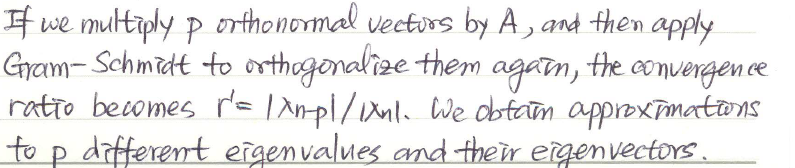 If we multiply p orthonormal vectors by A, and then apply
Gram-Schmidt to orthogonalize them again, the convergence
ratio becomes r'= |λn-p|/|λn|. We obtain approximations
to p different eigenvalues and their eigenvectors.